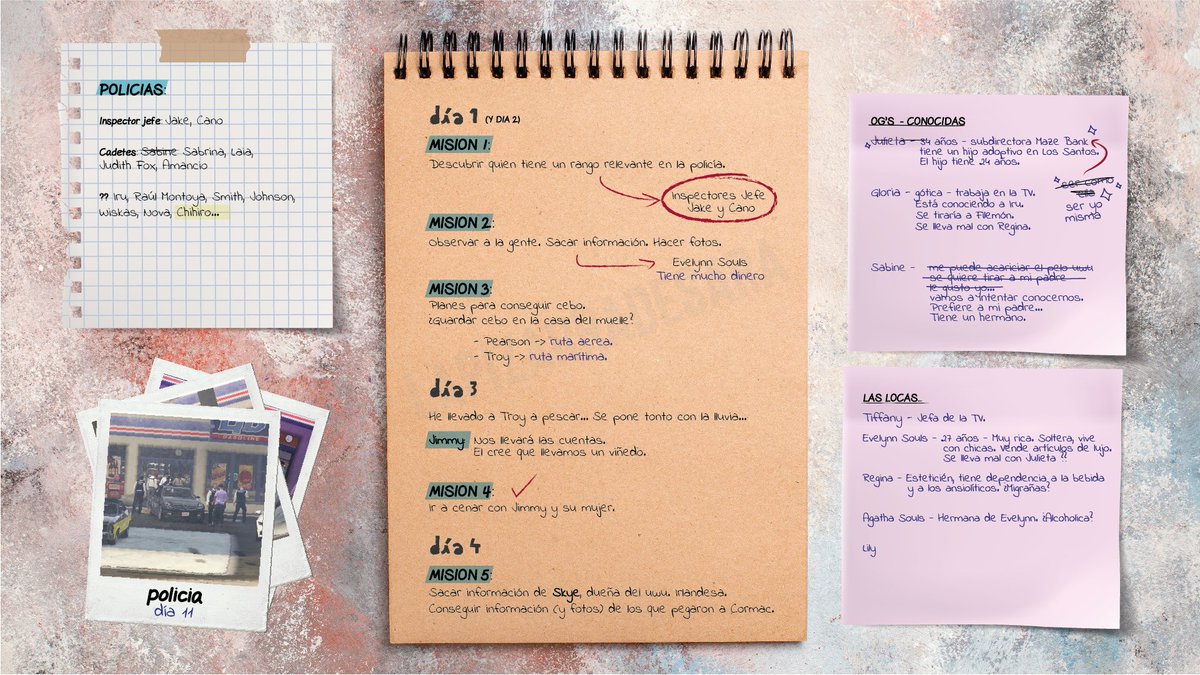 POLICIAS:
Inspector jefe: Jake, Cano
Cadetes: Sabine Sabrina, Laia,
Judith Fox, Amancio
?? Iru, Raúl Montoya, Smith, Johnson,
Wiskas, Nova, Chihiro...
GASOLINE
policia
día 11
día 1 (Y DIA 2)
MISION 1:
Descubrir quien tiene un rango relevante en la policía.
Inspectores Jefe
Jake y Cano
MISION 2:
Observar a la gente. Sacar información. Hacer fotos.
Evelynn Souls
Tiene mucho dinero
MISION 3:
Planes para conseguir cebo.
¿Guardar cebo en la casa del muelle?
- Pearson -> ruta aerea.
- Troy -> ruta marítima.
día 3
He llevado a Troy a pescar... Se pone tonto con la lluvia...
Jimmy: Nos llevará las cuentas.
El cree que llevamos un viñedo.
MISION 4:
Ir a cenar con Jimmy y su mujer.
día 4
MISION 5:
Sacar información de Skye, dueña del uwu. Irlandesa.
Conseguir información (y fotos) de los que pegaron a Cormac.
OG'S - CONOCIDAS
Julieta - 34 años - subdirectora Maze Bank
tiene un hijo adoptivo en Los Santos.
El hijo tiene 24 años.
ser como
ella
ser yo
misma
Gloria - gótica - trabaja en la TV.
Está conociendo a Iru.
Se tiraría a Filemón.
Se lleva mal con Regina.
Sabine - me puede acariciar el pelo uwu
se quiere tirar a mi padre
le gusto yo...
vamos a intentar conocernos.
Prefiere a mi padre...
Tiene un hermano.
LAS LOCAS...
Tiffany - Jefa de la TV.
Evelynn Souls - 27 años - Muy rica. Soltera, vive
con chicas. Vende artículos de lujo.
Se lleva mal con Julieta ??
Regina - Esteticién, tiene dependencia a la bebida
y a los ansiolíticos. ¿Migrañas?
Agatha Souls - Hermana de Evelynn. ¿Alcoholica?
Lily